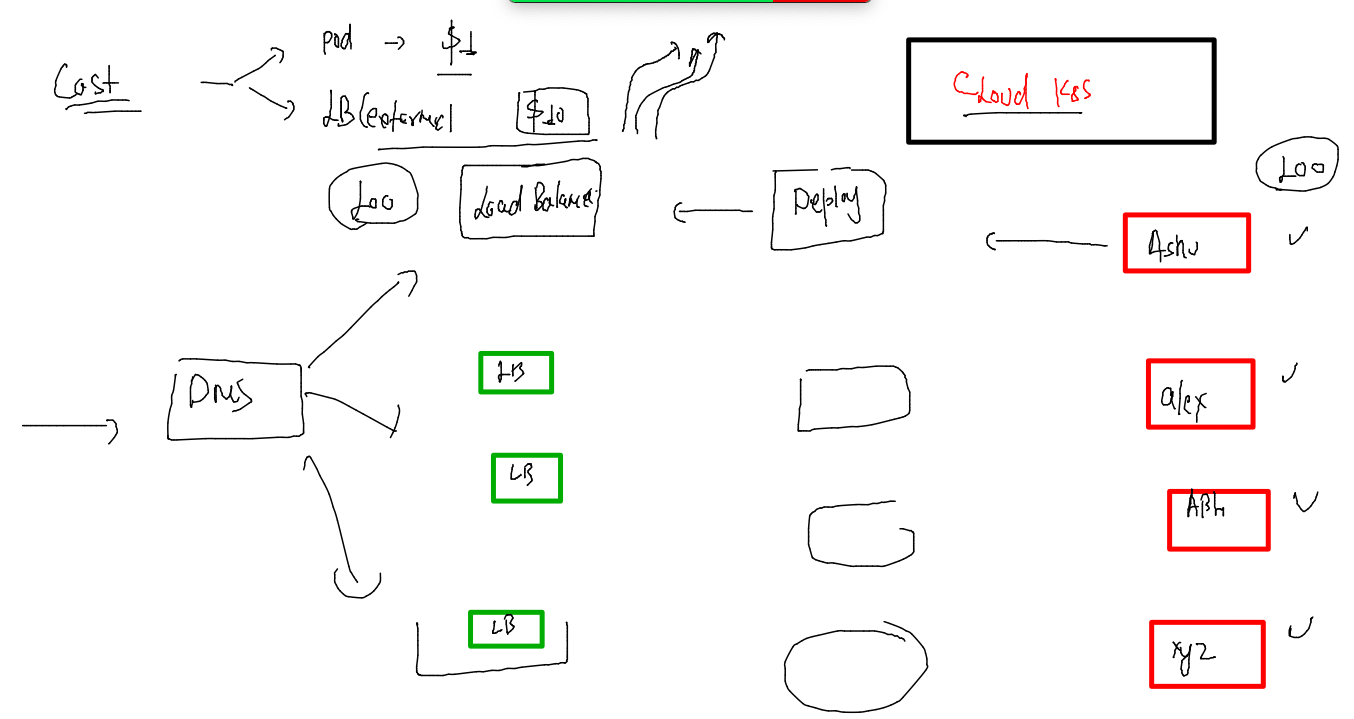 Cost
pod → $1
LB(external $10
Cloud K8S
100
100
Load Balance
Deploy
Ashu
DNS
LB
alex
LB
ABh
LB
xyz